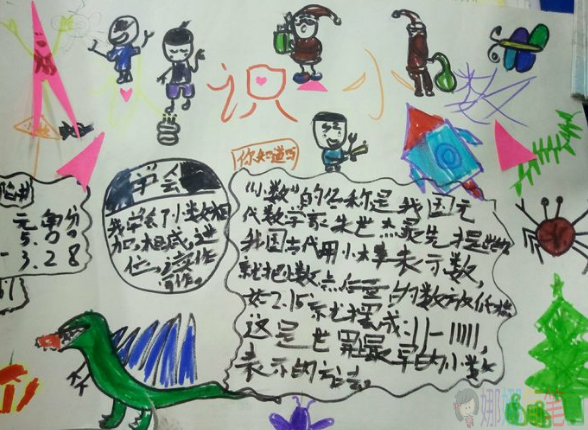 认识小数
你知道吗
学会
我学会了小数相
加、相减、进
位、
"小数"的名称是我国元
代数学家朱世杰最先提出
我国古代用小木棒表示数,
就把小数点后面的数放低一格
如2.15就摆成:11-11111,
这是世界最早的小数
表示的方法。
元角分
5.00
-3.28